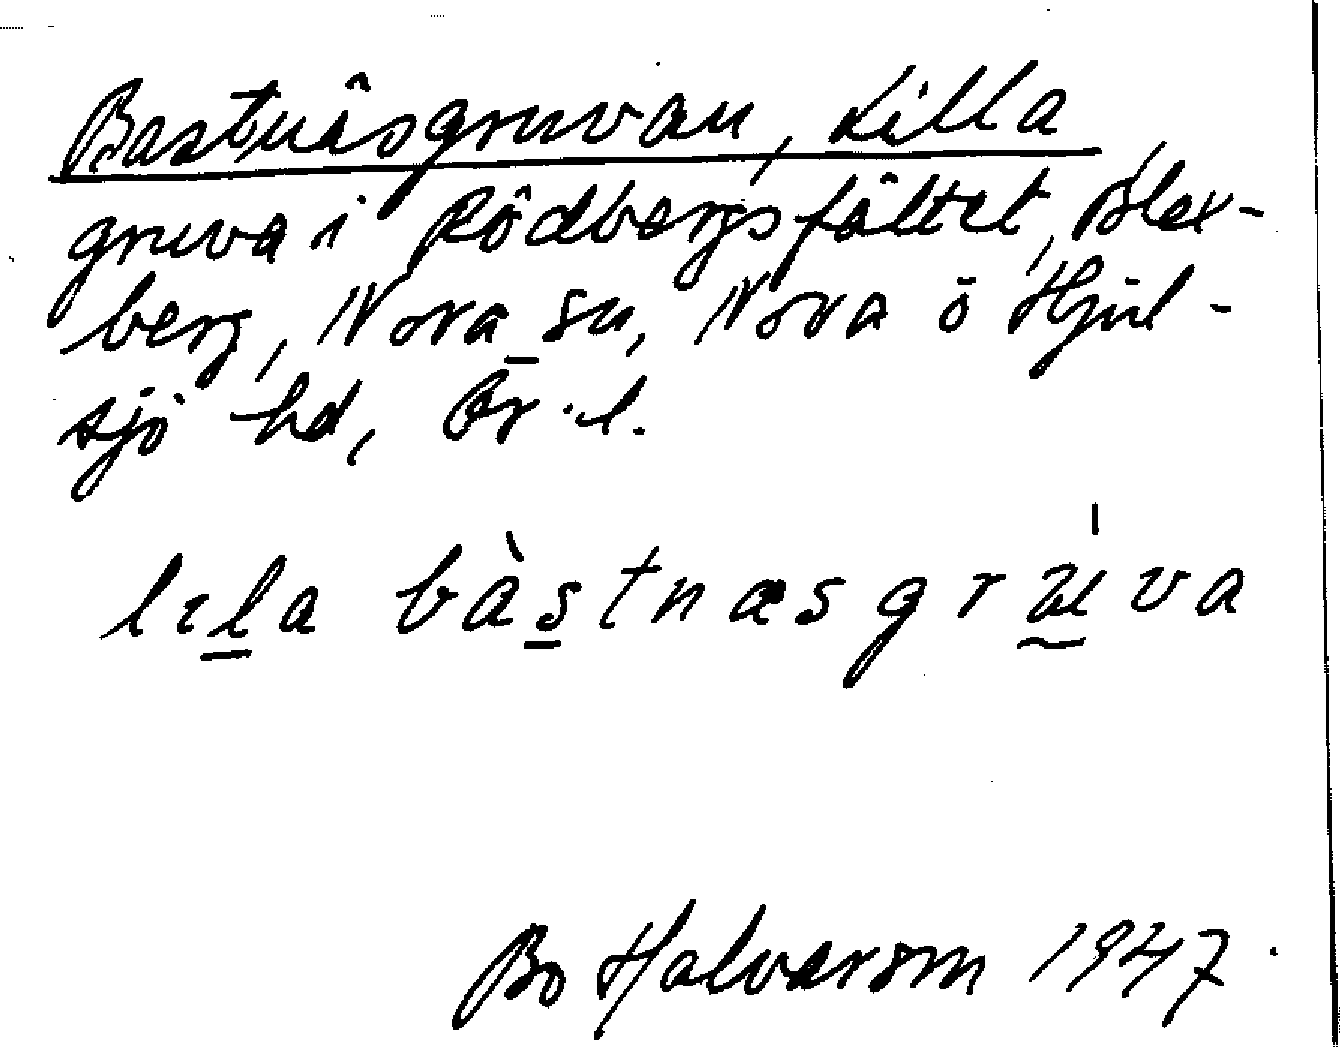 Bastnäsgruvan, Lilla
gruva i Rödbergsfältet, Blex-
berg, Nora sn, Nora o Hjul-
sjö hd, Ör. l.
lıla bàstnæsgruva
Bo Halvarson 1947.